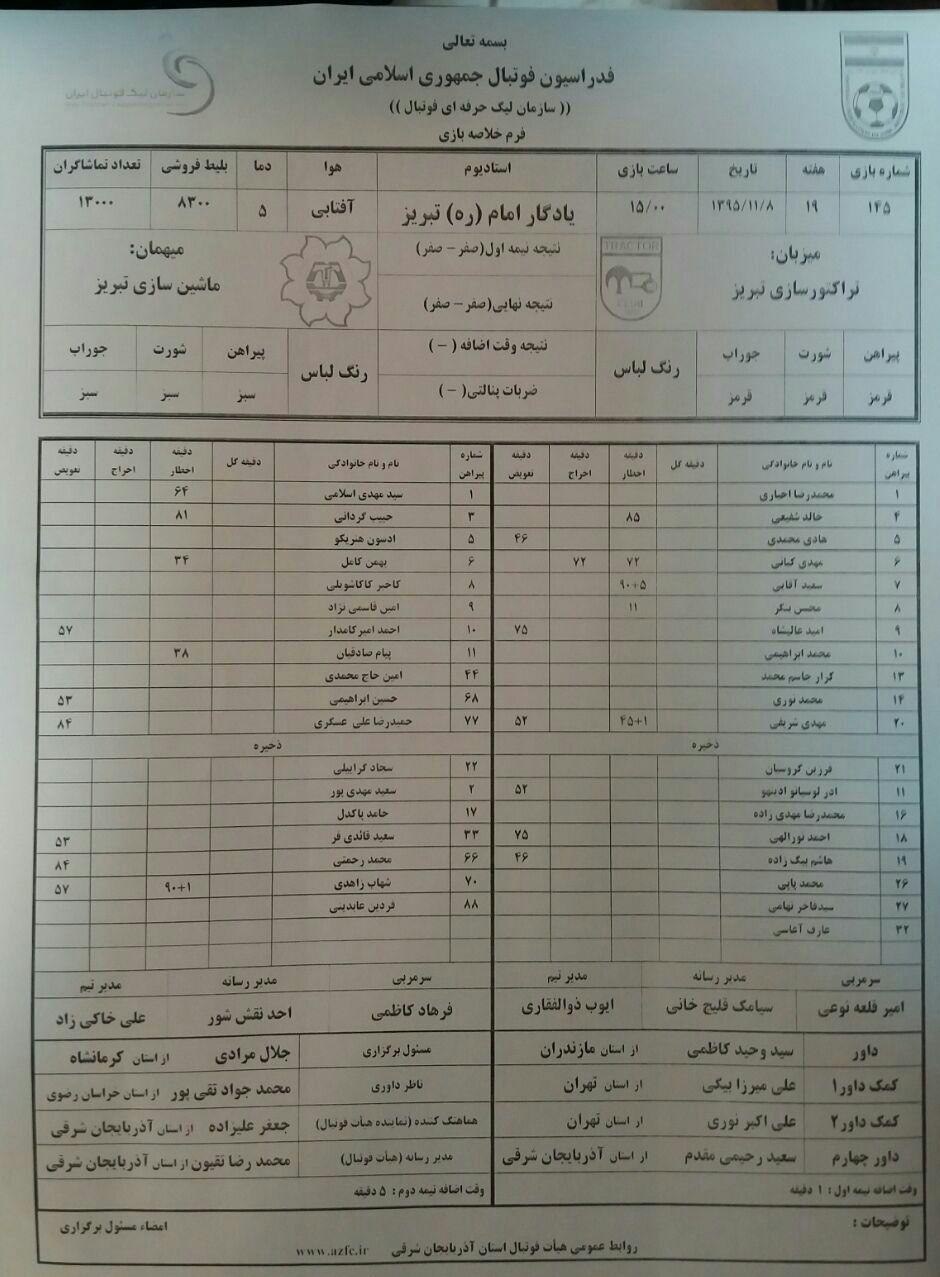 بسمه تعالی
فدراسیون فوتبال جمهوری اسلامی ایران
(( سازمان لیگ حرفه ای فوتبال ))
فرم خلاصه بازی
سازمان لیگ فوتبال ایران
شماره بازی هفته تاریخ ساعت بازی استادیوم هوا دما بلیط فروشی تعداد تماشاگران
۱۴۵ ۱۹ ۱۳۹۵/۱۱/۸ ۱۵/۰۰ یادگار امام (ره) تبریز آفتابی ۵ ۸۳۰۰ ۱۳۰۰۰
میزبان: TRACTOR CLUB نتیجه نیمه اول(صفر – صفر) میهمان:
تراکتورسازی تبریز نتیجه نهایی(صفر – صفر) ماشین سازی تبریز
پیراهن شورت جوراب رنگ لباس نتیجه وقت اضافه ( – ) رنگ لباس پیراهن شورت جوراب
قرمز قرمز قرمز ضربات پنالتی( – ) سبز سبز سبز
شماره پیراهن نام و نام خانوادگی دقیقه گل دقیقه اخطار دقیقه اخراج دقیقه تعویض شماره پیراهن نام و نام خانوادگی دقیقه گل دقیقه اخطار دقیقه اخراج دقیقه تعویض
۱ محمدرضا اخباری ۱ سید مهدی اسلامی ۶۴
۴ خالد شفیعی ۸۵ ۳ حبیب گردانی ۸۱
۵ هادی محمدی ۴۶ ۵ ادسون هنریکو
۶ مهدی کیانی ۷۲ ۷۲ ۶ بهمن کامل ۳۴
۷ سعید آقایی ۹۰+۵ ۸ کاخبر کاکاشویلی
۸ محسن بنگر ۱۱ ۹ امین قاسمی نژاد
۹ امید عالیشاه ۷۵ ۱۰ احمد امیرکامدار ۵۷
۱۰ محمد ابراهیمی ۱۱ پیام صادقیان ۳۸
۱۳ کرار جاسم محمد ۴۴ امین حاج محمدی
۱۴ محمد نوری ۶۸ حسین ابراهیمی ۵۳
۲۰ مهدی شریفی ۴۵+۱ ۵۲ ۷۷ حمیدرضا علی عسگری ۸۴
ذخیره ذخیره
۲۱ فرزین گروسیان ۲۲ سجاد گراییلی
۱۱ ادر لوسیانو ادینهو ۵۲ ۲ سعید مهدی پور
۱۶ محمدرضا مهدی زاده ۱۷ حامد پاکدل
۱۸ احمد نورالهی ۷۵ ۳۳ سعید قائدی فر ۵۳
۱۹ هاشم بیگ زاده ۴۶ ۶۶ محمد رحمتی ۸۴
۲۶ محمد پاپی ۷۰ شهاب زاهدی ۹۰+۱ ۵۷
۲۷ سیدفاخر تهامی ۸۸ فردین عابدینی
۳۲ عارف آغاسی
سرمربی مدیر رسانه مدیر تیم سرمربی مدیر رسانه مدیر تیم
امیر قلعه نوعی سیامک قلیچ خانی ایوب ذوالفقاری فرهاد کاظمی احد نقش شور علی خاکی زاد
داور سید وحید کاظمی از استان مازندران مسئول برگزاری جلال مرادی از استان کرمانشاه
کمک داور۱ علی میرزا بیگی از استان تهران ناظر داوری محمد جواد تقی پور از استان خراسان رضوی
کمک داور۲ علی اکبر نوری از استان تهران هماهنگ کننده (نماینده هیأت فوتبال) جعفر علیزاده از استان آذربایجان شرقی
داور چهارم سعید رحیمی مقدم از استان آذربایجان شرقی مدیر رسانه (هیأت فوتبال) محمد رضا تقیون از استان آذربایجان شرقی
وقت اضافه نیمه اول : ۱ دقیقه وقت اضافه نیمه دوم : ۵ دقیقه
توضیحات : امضاء مسئول برگزاری
روابط عمومی هیأت فوتبال استان آذربایجان شرقی www.azfc.ir